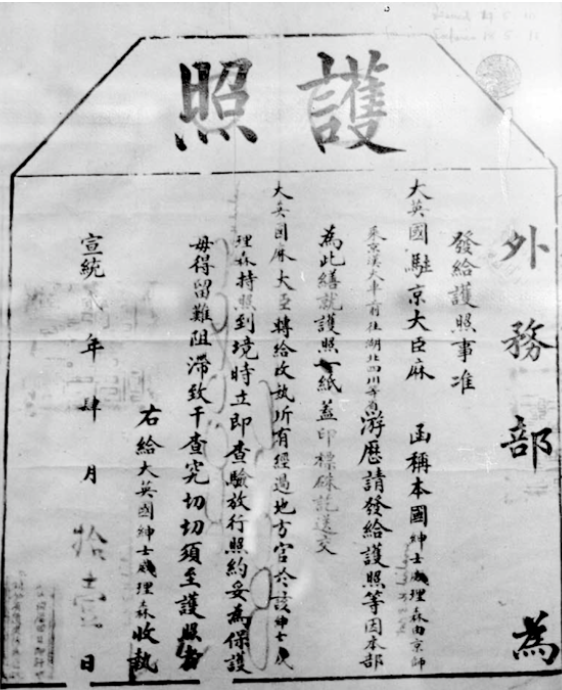 護照
外務部為
發給護照事准
大英國駐京大臣麻 函稱本國紳士戚理森由京師
乘京漢火車前往湖北四川等省游歷請發給護照等因本部
為此繕就護照一紙蓋印標硃訖送交
大英國麻大臣轉給收執所有經過地方官於該紳士戚
理森持照到境時立即查驗放行照約妥為保護
毋得留難阻滯致干查究切切須至護照者
右給大英國紳士戚理森收執
宣統貳年肆月拾壹日